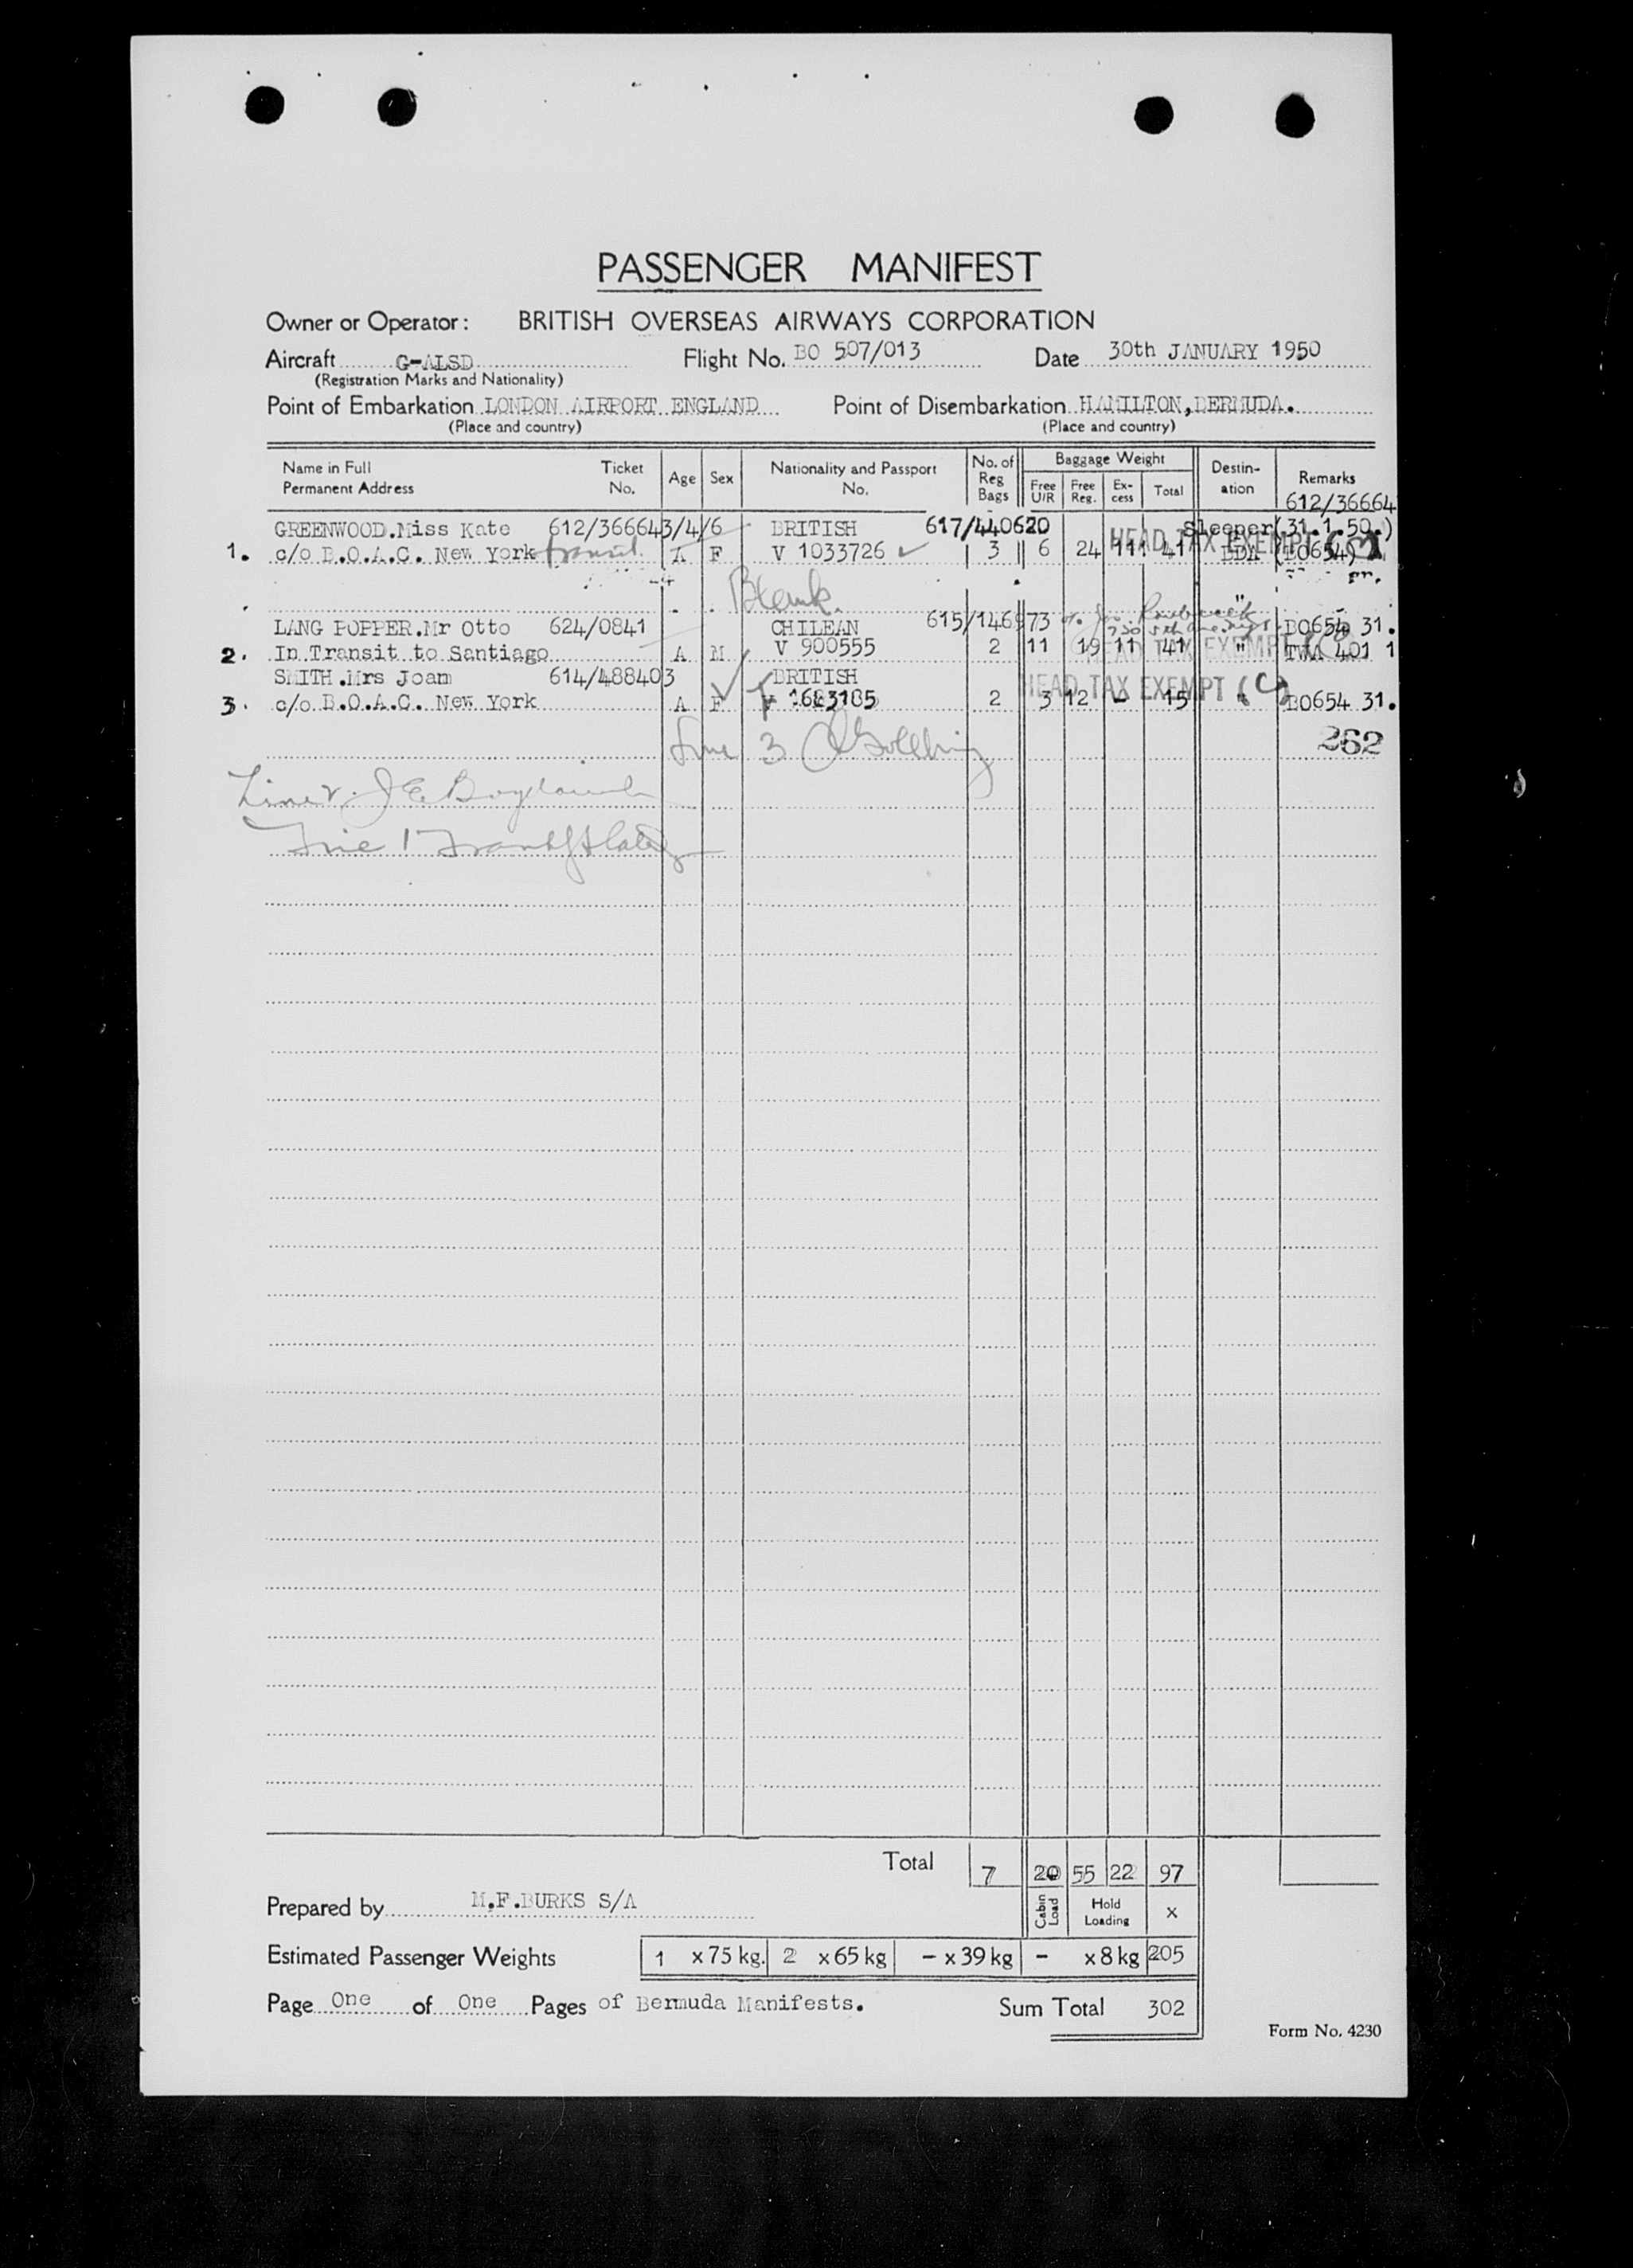 PASSENGER MANIFEST
Owner or Operator: BRITISH OVERSEAS AIRWAYS CORPORATION
Aircraft G-ALSD Flight No. BO 507/013 Date 30th JANUARY 1950
(Registration Marks and Nationality)
Point of Embarkation LONDON AIRPORT ENGLAND Point of Disembarkation HAMILTON, BERMUDA.
(Place and country) (Place and country)
Name in Full Permanent Address Ticket No. Age Sex Nationality and Passport No. No. of Reg Bags Baggage Weight Free U/R Free Reg. Ex-cess Total Destin-ation Remarks
612/36664
GREENWOOD.Miss Kate 612/366643/4/6 BRITISH 617/440620 Sleeper(31.1.50.)
1. c/o B.O.A.C. New York transit. A F V 1033726 3 6 24 11 41 BDA (BO654)
HEAD TAX EXEMPT
Blank. "
LANG POPPER.Mr Otto 624/0841 CHILEAN 615/146973 BO654 31.
2. In Transit to Santiago A M V 900555 2 11 19 11 41 " TWA 401 1
HEAD TAX EXEMPT
SMITH.Mrs Joan 614/488403 BRITISH
3. c/o B.O.A.C. New York A F 2 3 12 - 15 " BO654 31.
HEAD TAX EXEMPT (C)
Line 3
262
Line 2
Line 1
Total 7 20 55 22 97
Prepared by M.F.BURKS S/A Cabin Load Hold Loading x
Estimated Passenger Weights 1 x 75 kg. 2 x 65 kg - x 39 kg - x 8 kg 205
Page One of One Pages of Bermuda Manifests. Sum Total 302
Form No. 4230